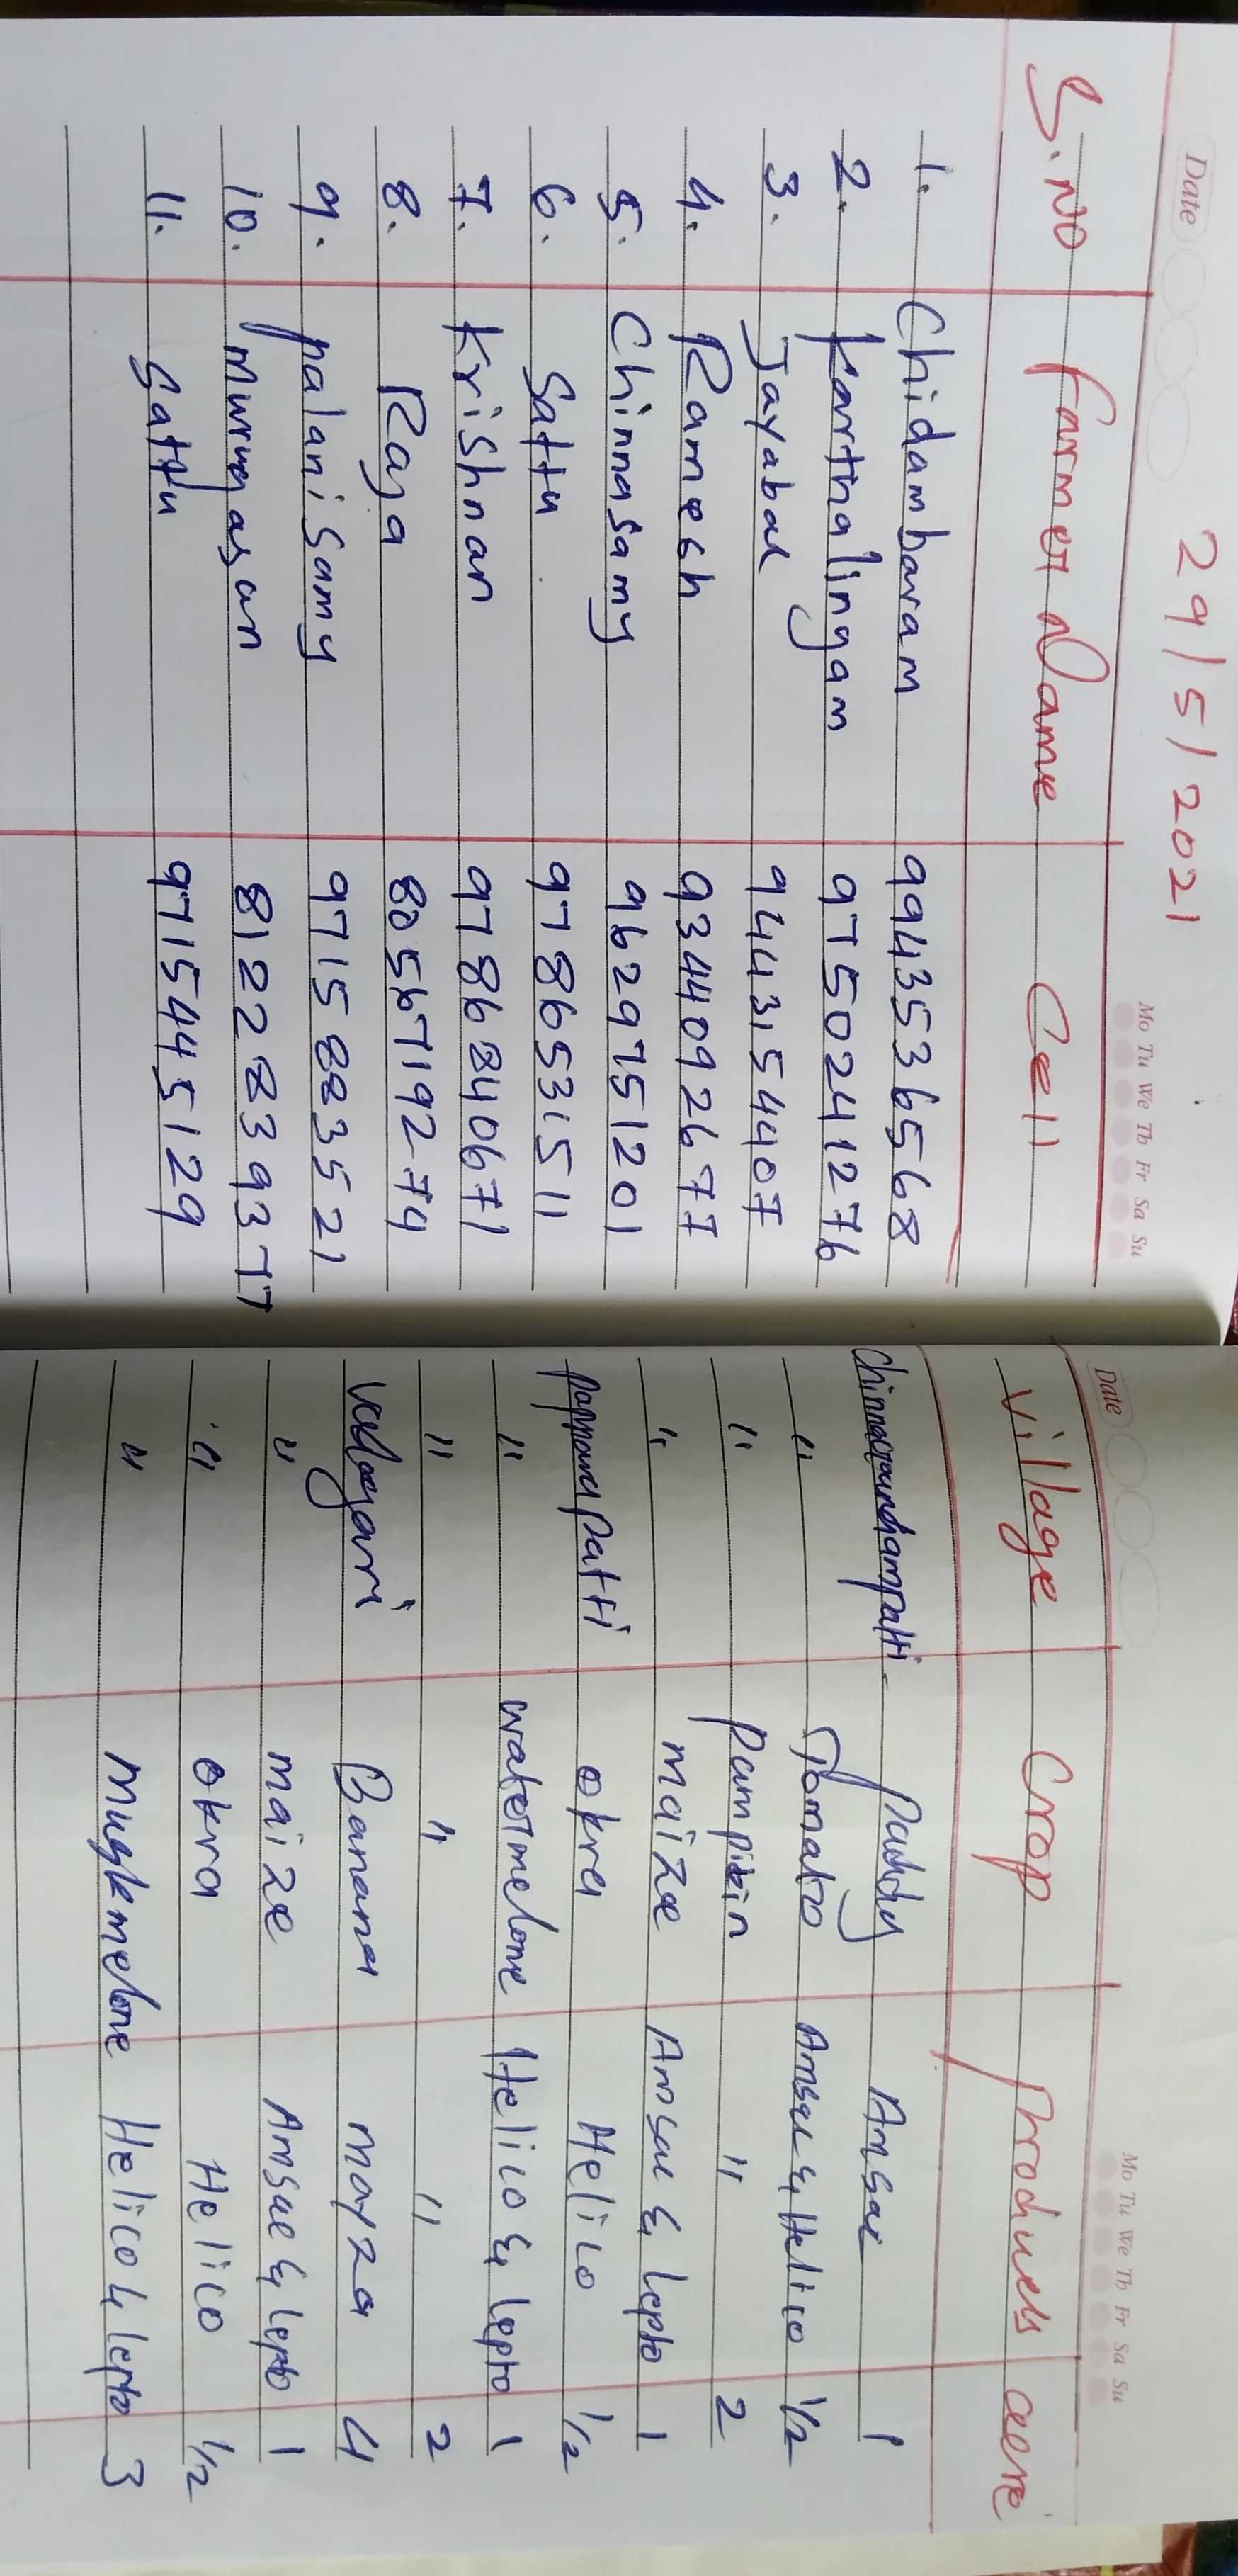 Date
29/5/2021
Mo Tu We Th Fr Sa Su
Date
Mo Tu We Th Fr Sa Su
S.No Farmer Name Cell Village Crop Products acre
1. Chidambaram 9943536568 Chinnagoundampatti Paddy Amsac 1
2. Karthalingam 9750241276 " Tomato Amsac & Helico 1/2
3. Jayabal 9443154407 " Pumpkin " 2
4. Ramesh 9344092677 " maize Amsac & Lepto 1
5. Chinnasamy 9629751201 Pappanapatti okra Helico 1/2
6. Sattu 9786531511 " watermelone Helico & Lepto 1
7. Krishnan 9786840671 " " " 2
8. Raja 8056719274 Banana 4
9. palanisamy 9715883521 " maize Amsac & Lepto 1
10. Murugasan 8122839377 " okra Helico 1/2
11. Sattu 9715445129 " muskmelone Helico & Lepto 3